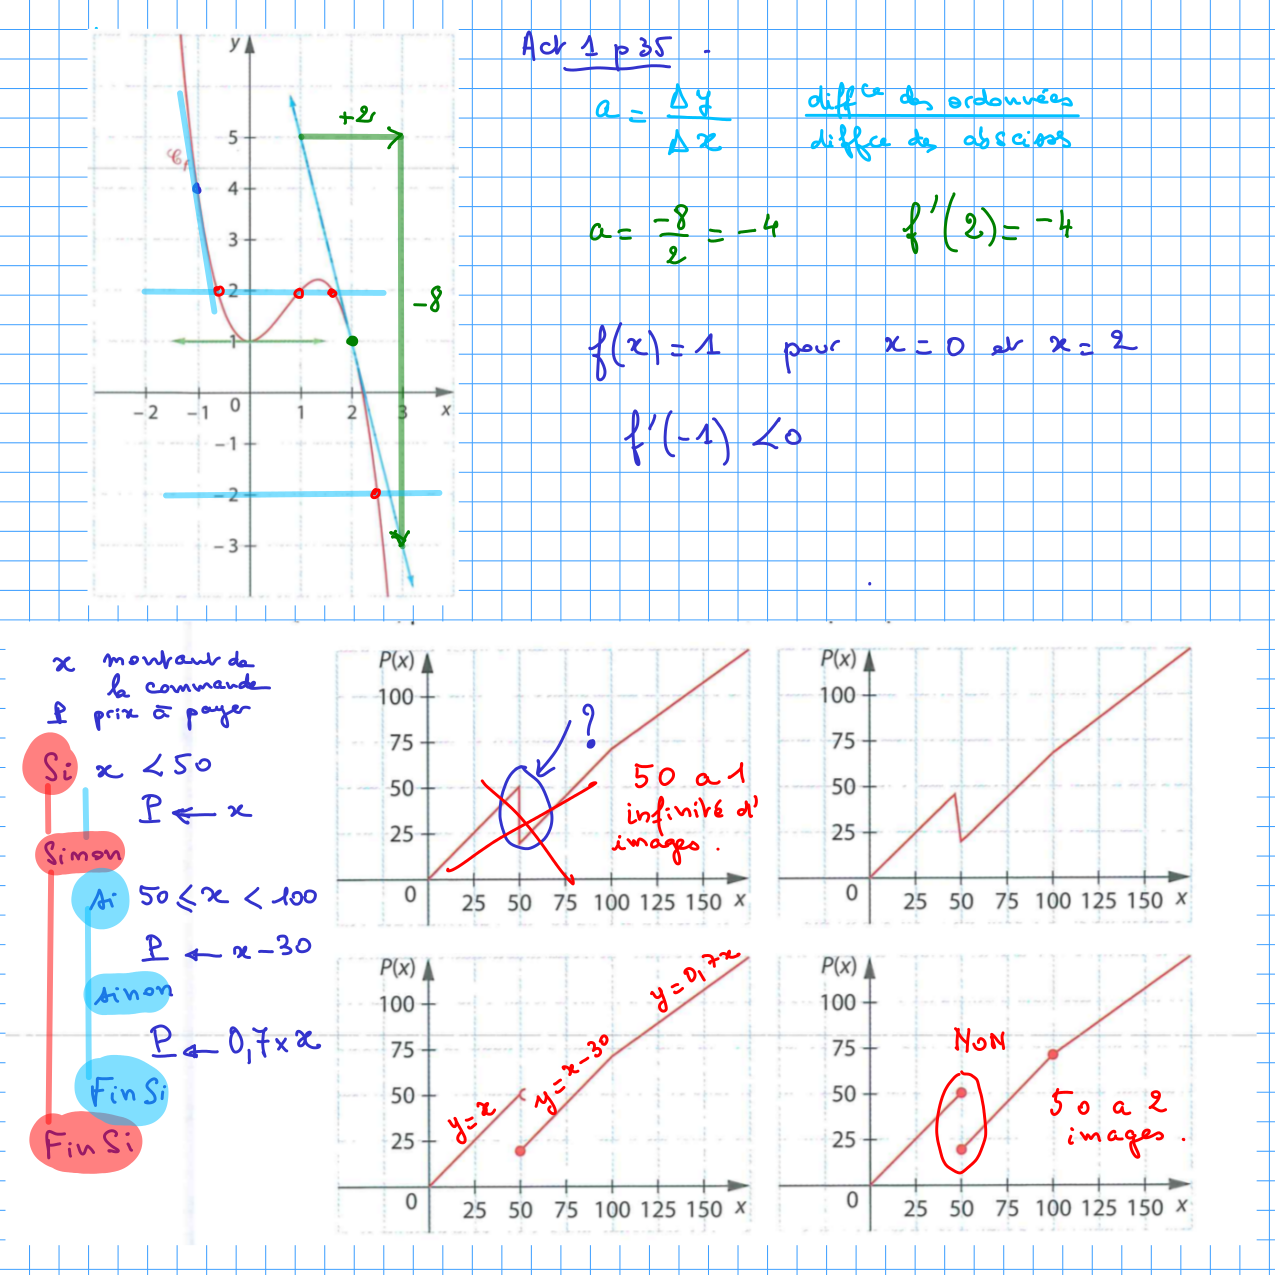 Act 1 p 35 .
a = Δy / Δx
diffce des ordonnées / diffce des abscisses
a = -8/2 = -4
f'(2) = -4
f(x) = 1 pour x = 0 et x = 2
f'(-1) < 0
y
+2
5
4
3
2
1
-1
-2
-3
-8
𝒞f
-2 -1 0 1 2 3 x
x montant de
la commande
P prix à payer
Si x < 50
P ← x
Sinon
si 50 ≤ x < 100
P ← x - 30
sinon
P ← 0,7 × x
FinSi
FinSi
P(x)
100
75
50
25
0 25 50 75 100 125 150 x
?
50 a 1
infinité d'
images .
P(x)
100
75
50
25
0 25 50 75 100 125 150 x
P(x)
100
75
50
25
0 25 50 75 100 125 150 x
y = x
y = x - 30
y = 0,7x
P(x)
100
75
50
25
0 25 50 75 100 125 150 x
NON
50 a 2
images .